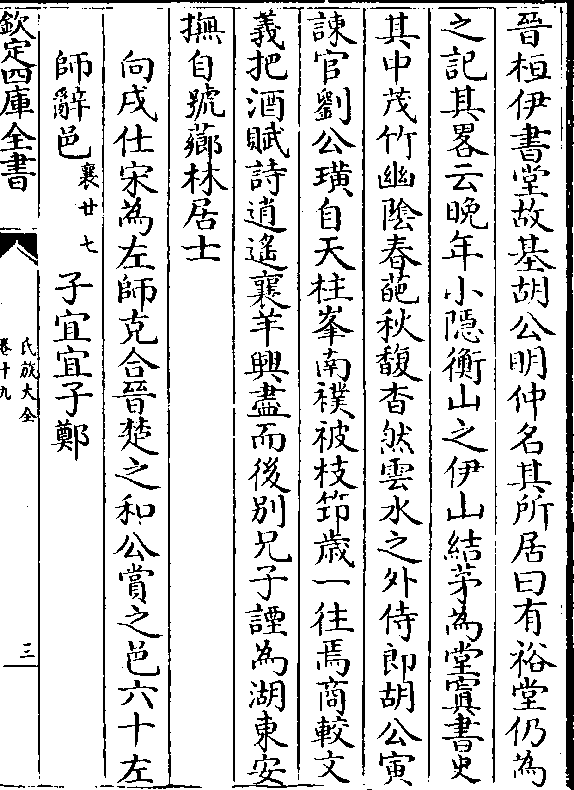 晉桓伊書堂故基胡公明仲名其所居曰有裕堂仍為
之記其畧云晚年小隱衡山之伊山結茅為堂寘書史
其中茂竹幽陰春葩秋馥杳然雲水之外侍郎胡公寅
諫官劉公璜自天柱峯南襆被枝笻歳一往焉商較文
義把酒賦詩逍遥襄羊興盡而後别兄子諲為湖東安
撫自號薌林居士
向戌仕宋為左師克合晉楚之和公賞之邑六十左
師辭邑襄廿七 子宜宜子鄭
欽定四庫全書
氏族大全
卷十九
三